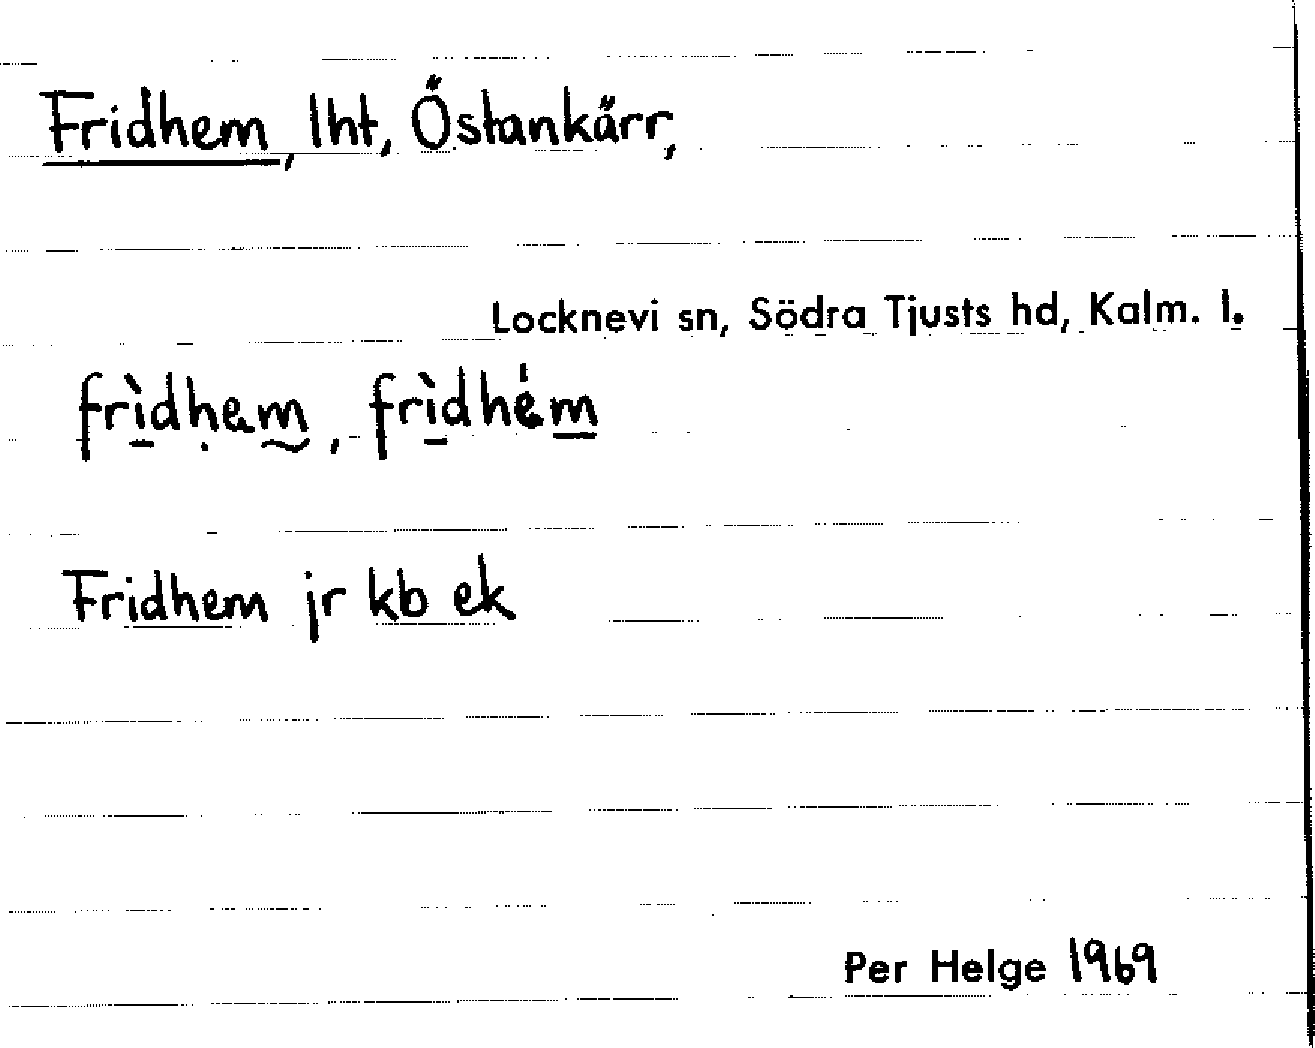 Fridhem, lht, Östankärr,
Locknevi sn, Södra Tjusts hd, Kalm. l.
frı̱̀dḥem̰, frı̱̀dhém̱
Fridhem jr kb ek
Per Helge 1969